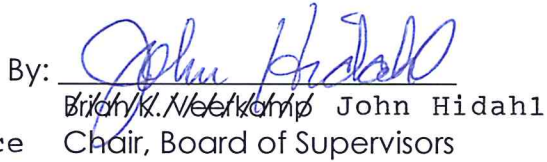 By: John Hidahl
Brian K. Veerkamp John Hidahl
ce Chair, Board of Supervisors